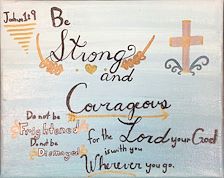 Joshua 1:9
Be
Strong
and
Courageous
Do not be
Frightened
Do not be
Dismayed
for the Lord your God
is with you
Wherever you go.